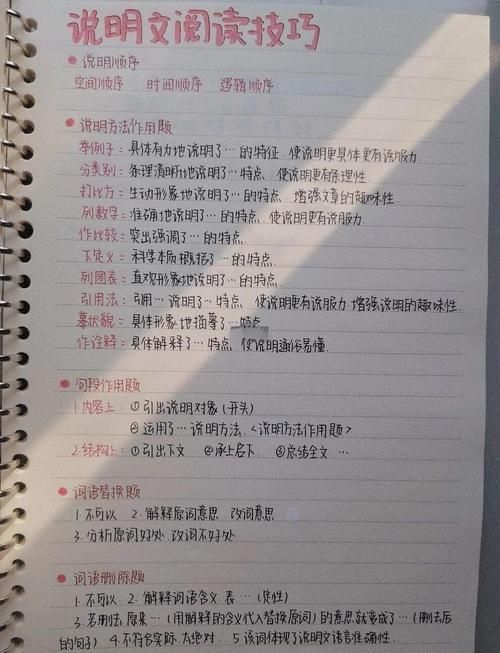 说明文阅读技巧
• 说明顺序
空间顺序 时间顺序 逻辑顺序
• 说明方法作用题
举例子:具体有力地说明了…的特征,使说明更具体更有说服力
分类别:条理清晰地说明了…特点,使说明更有条理性.
打比方:生动形象地说明了…的特点,增强文章的趣味性.
列数字:准确地说明了…的特点,使说明更有说服力.
作比较:突出强调了…的特点
下定义:科学本质概括了…的特点
列图表:直观形象地说明了…的特点.
引用法:引用…说明了…特点,使说明更有说服力.增强说明的趣味性.
摹状貌:具体形象地描摹了…特点
作诠释:具体解释了…特点,使说明通俗易懂.
• 句段作用题
1.内容上:①引出说明对象(开头)
②运用了…说明方法.<说明方法作用题>
2.结构上:①引出下文 ②承上启下 ③总结全文 …
• 词语替换题
1.不可以 2.解释原词意思,改词意思
3.分析原词好处,改词不好处
• 词语删除题
1.不可以. 2.解释词语含义.表…(性)
3.若删去.原来…(用解释的含义代入替换原词)的意思就变成了…(删去后
的句子) 4.不符合实际,太绝对. 5.该词体现了说明文语言准确性.